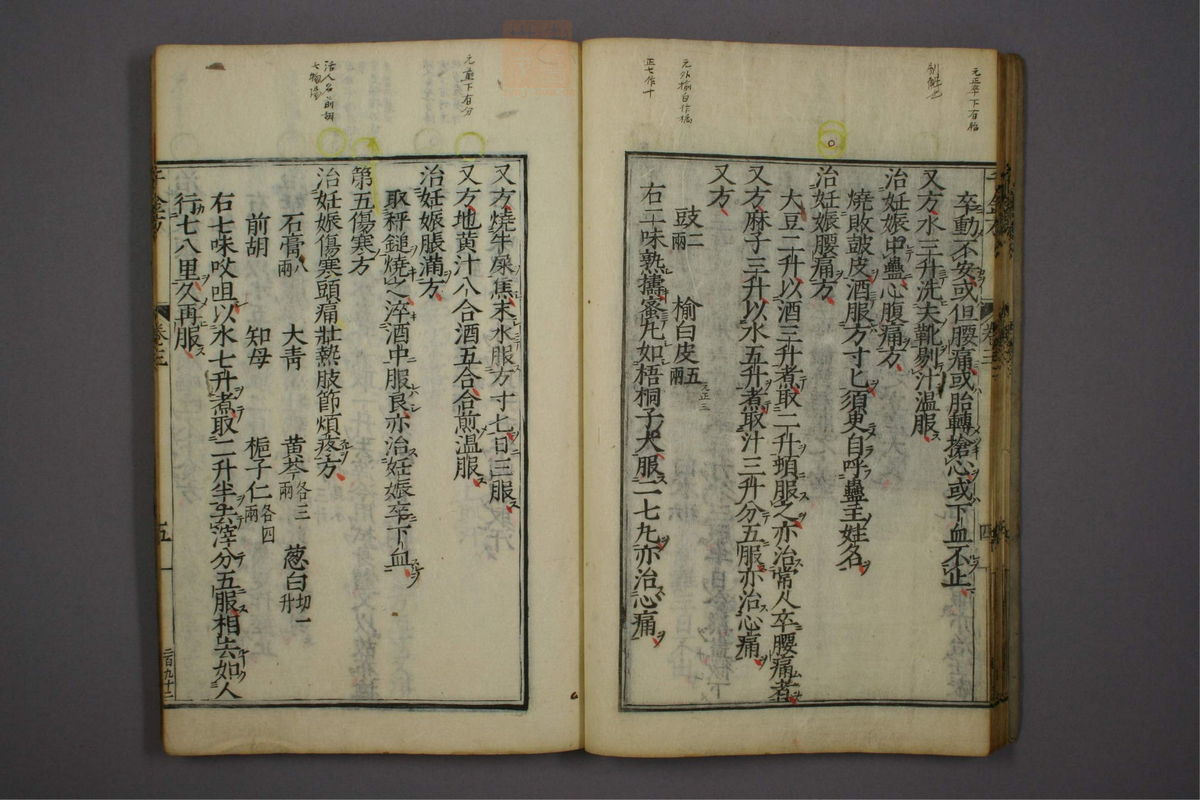 元正卒下有胎
別觧也
元外榆白作橘
正七作十
卒動不安或但腰痛或胎轉搶心或下血不止
又方水三升洗夫靴剔汁溫服
治妊娠中蠱心腹痛方
燒敗鼓皮酒服方寸匕須臾自呼蠱主姓名
治妊娠腰痛方
大豆二升以酒三升煮取二升頓服之亦治常人卒腰痛者
又方麻子三升以水五升煮取汁三升分五服亦治心痛
又方
豉二兩 榆白皮五兩
元正三
右二味熟擣蜜丸如梧桐子大服二七丸亦治心痛
卷三
四
元童下有分
活人名前胡
七物湯
又方燒牛屎焦末水服方寸匕日三服
又方地黃汁八合酒五合合煎溫服
治妊娠脹滿方
取秤鎚燒之淬酒中服良亦治妊娠卒下血
第五傷寒方
治妊娠傷寒頭痛壯熱肢節煩疼方
石膏八兩 大青 黃芩各三兩 葱白切一升
前胡 知母 梔子仁各四兩
右七味㕮咀以水七升煮取二升半去滓分五服相去如人
行七八里久再服
千金方
卷三
五
二百九十二